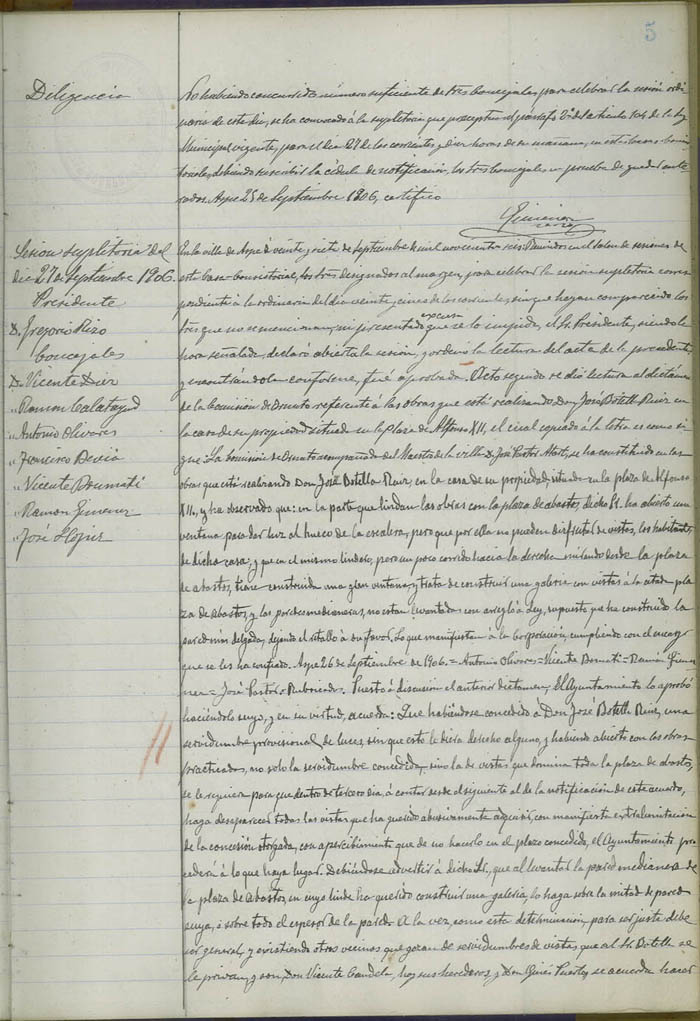 5
Diligencia
No habiendo concurrido número suficiente de tres Concejales, para celebrar la sesión ordi
naria de este dia, se ha convocado á la supletoria que preceptua el párrafo 2º del articulo 104 de la ley
Municipal vigente, para el dia 27 de los corrientes y diez horas de su mañana, en estas Casas Consis
toriales, debiendo suscribir la cédula de notificación, los tres Concejales en prueba de quedar ente
rados. Aspe 25 de Septiembre 1906, certifico
Sesion supletoria del
dia 27 de Septiembre 1906
Presidente
D. Gregorio Rizo
Concejales
D. Vicente Diez
" Ramon Calatayud
" Antonio Olivares
" Francisco
" Vicente
" Ramon Gimenez
" José
En la villa de Aspe á veinte y siete de Septiembre de mil novecientos seis: Reunidos en el salon de sesiones de
esta Casa-Consistorial, los tres designados al margen, para celebrar la sesión supletoria corres
pondiente á la ordinaria del dia veinte y cinco de los corrientes, sin que hayan comparecido los
tres que no se mencionan, ni presentado excusa que se lo impida, el Sr. Presidente, siendo la
hora señalada, declaró abierta la sesión, y ordenó la lectura del acta de la precedente
y encontrándola conforme, fué aprobada. Acto seguido se dió lectura al dictámen
de la Comision de Ornato referente á las obras que está realizando Don José Botella Ruiz en
la casa de su propiedad situada en la plaza de Alfonso XII, el cual copiado á la letra es como si
gue: La Comisión de Ornato acompañada del Maestro de la villa D. José Pastor, se ha constituido en las
obras que está realizando Don José Botella Ruiz, en la casa de su propiedad situada en la plaza de Alfonso
XII, y ha observado que: en la parte que lindan las obras con la plaza de abastos, dicho Sr. ha abierto una
ventana para dar luz al hueco de la escalera, pero que por ella no pueden disfrutar de vistas, los habitantes
de dicha casa; y que en el mismo lindero, pero un poco corrido hacia la derecha mirando desde la plaza
de abastos, tiene construida una gran ventana, y trata de construir una galería con vistas á la citada pla
za de abastos, y las paredes medianeras, no estan levantadas con arreglo á Ley, supuesto que ha construido la
pared más delgada, dejando el retallo á su favor. Lo que manifiestan á la Corporación, cumpliendo con el encargo
que se les ha confiado. Aspe 26 de Septiembre de 1906. = Antonio Olivares = Vicente = Ramón Gime
nez = José Pastor = Rubricados. Puesto á discusión el anterior dictamen, El Ayuntamiento lo aprobó
haciéndolo suyo, y en su virtud, acuerda: Que habiéndose concedido á Don José Botella Ruiz, una
servidumbre provisional de luces, sin que esto le diera derecho alguno, y habiendo abierto con las obras
practicadas, no solo la servidumbre concedida, sino la de vistas que domina toda la plaza de abastos,
se le requiera para que dentro de tercero dia, á contar desde el siguiente al de la notificación de este acuerdo,
haga desaparecer todas las vistas que ha querido abusivamente adquirir, con manifiesta extralimitación
de la concesión otorgada, con apercibimiento que de no hacerlo en el plazo concedido, el Ayuntamiento pro
cederá á lo que haya lugar. Debiéndose advertir á dicho Sr., que al levantar la pared medianera de
la plaza de abastos, en cuya linde ha querido construir una galería, lo haga sobre la mitad de pared
suya, ó sobre todo el espesor de la pared. A la vez, como esta determinación, para ser justa debe
ser general, y existiendo otros vecinos que gozan de servidumbres de vistas que al Sr. Botella se
le privan, y son Don Vicente Candela, hoy sus herederos, y Don Ginés Puerto, se acuerda hacer